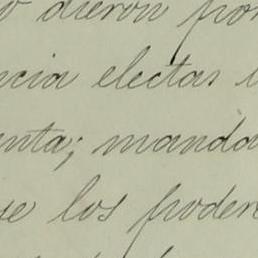 o dieron por
ncia electas l
enta; manda
ue los poder